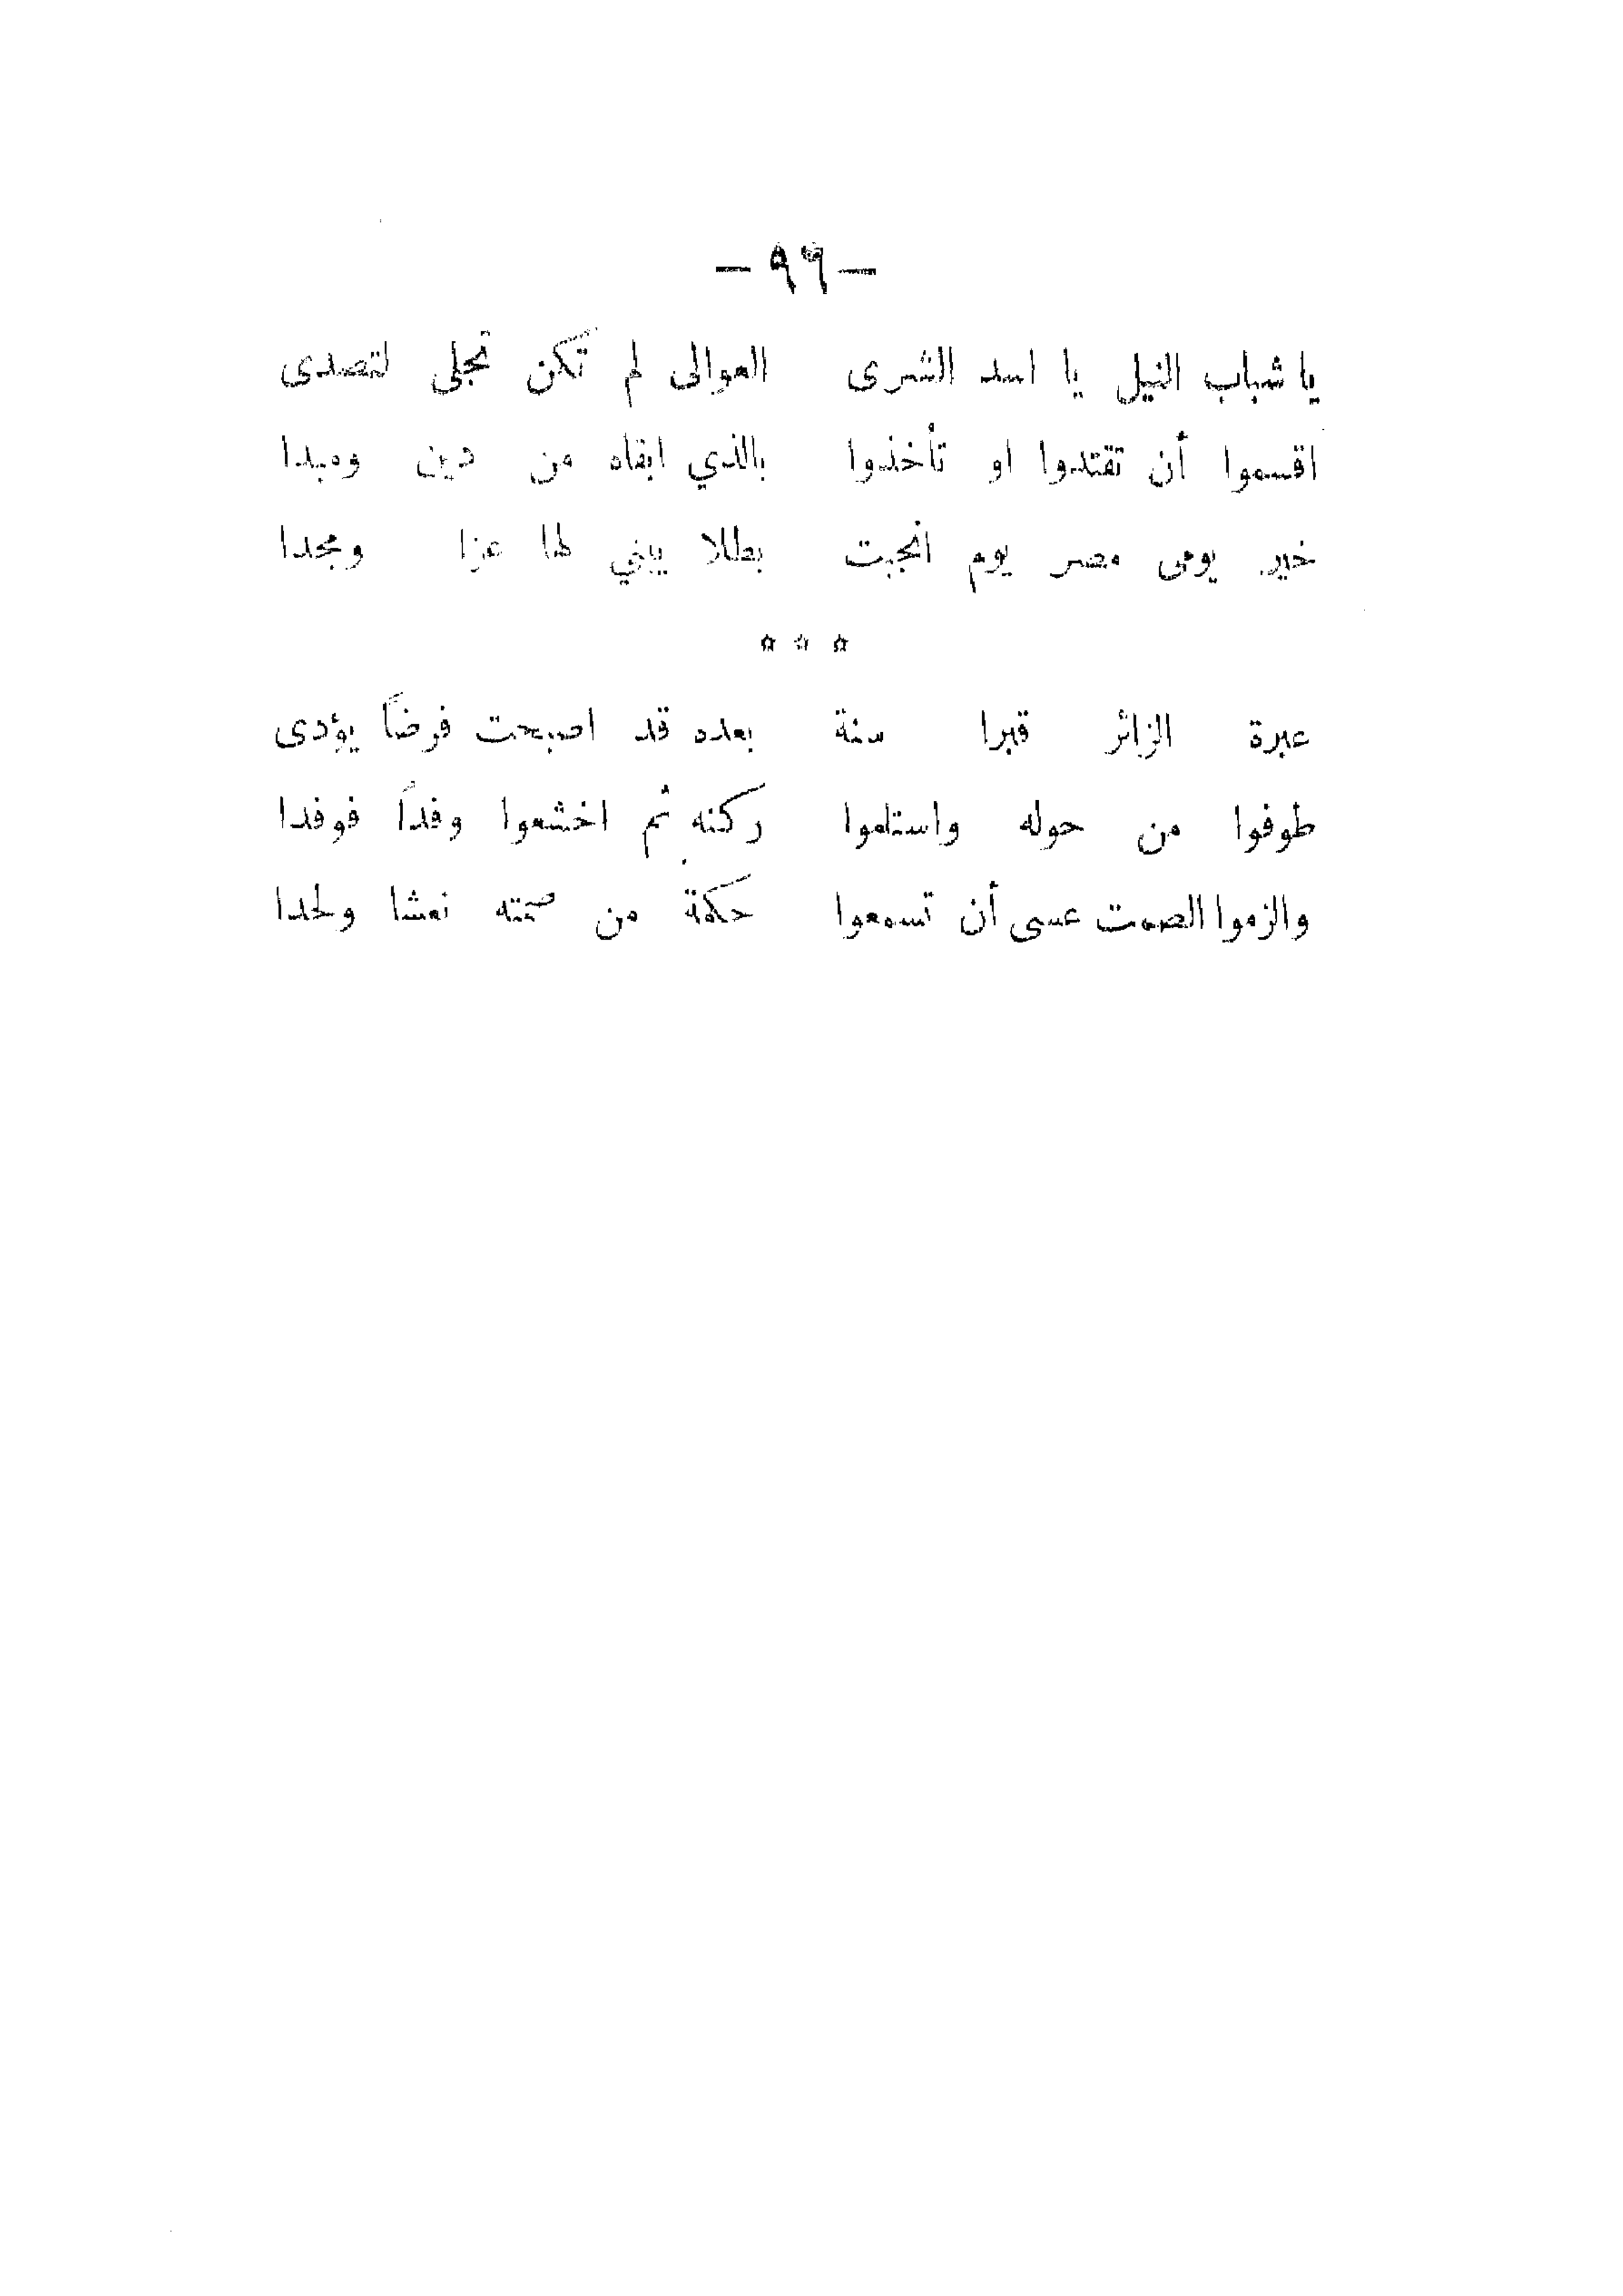 — ٩٩ —
يا شباب النيل يا اسد الشرى العوالى لم تكن تجلى لتصدى
اقسموا أن تقتدوا او تأخذوا بالذي ابقاه من دين ومبدا
خير يومى مصر يوم انجبت بطلا يبني لها عزا ومجدا
* * *
عبرة الزائر قبرا سنة بعده قد اصبحت فرضاً يؤدى
طوفوا من حوله واستلموا ركنه ثم اخشعوا وفداً فوفدا
والزموا الصمت عسى أن تسمعوا حكمة من صمته نعشا ولحدا